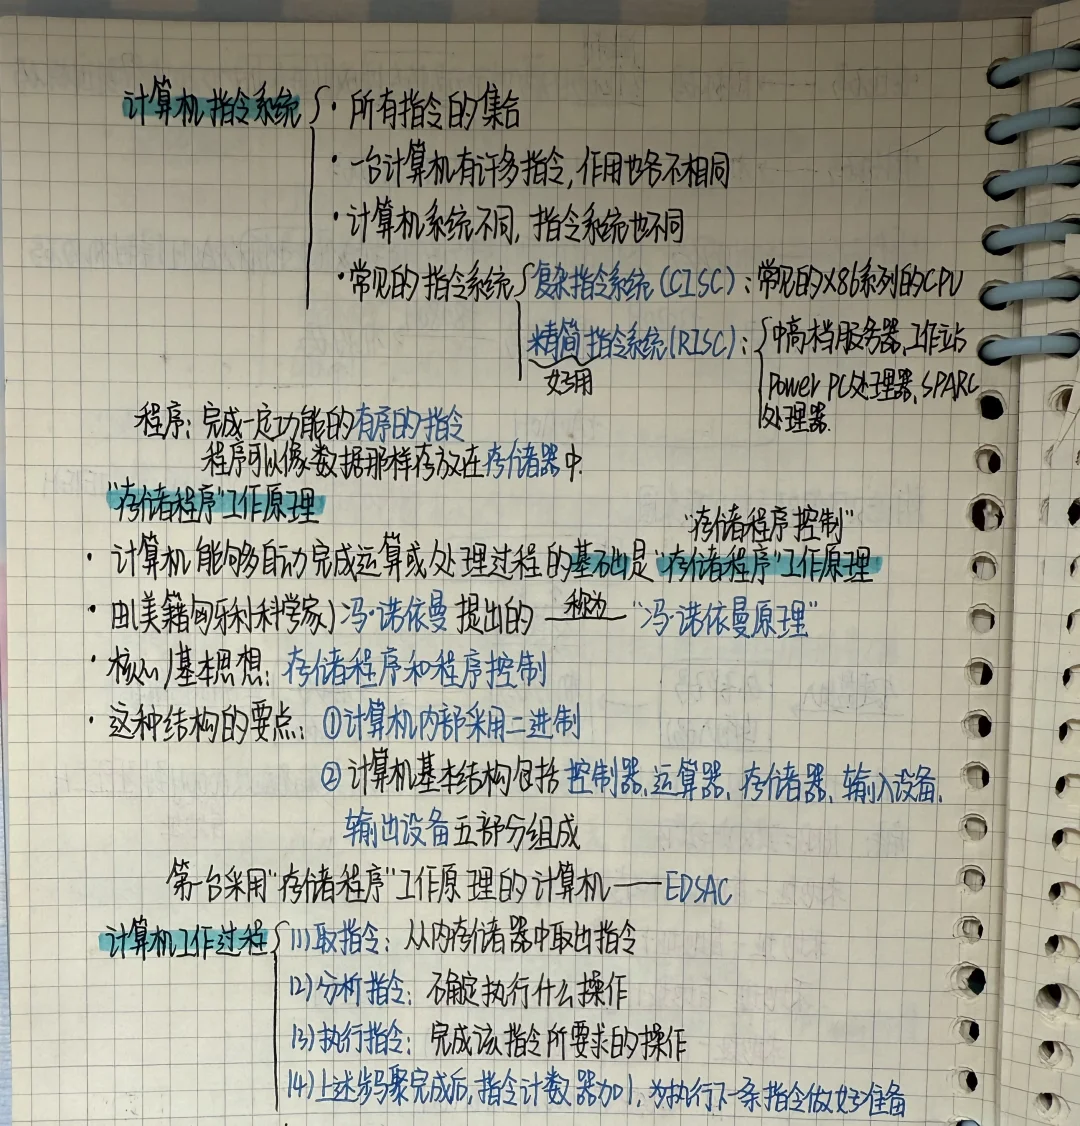 计算机指令系统 · 所有指令的集合
· 一台计算机有许多指令,作用也各不相同
· 计算机系统不同,指令系统也不同
· 常见的指令系统 复杂指令系统(CISC):常见的X86系列的CPU
精简指令系统(RISC): 中高档服务器、工作站
好用 Power PC处理器、SPARC
处理器.
程序:完成一定功能的有序的指令
程序可以像数据那样存放在存储器中.
"存储程序"工作原理
"存储程序控制"
· 计算机能够自动完成运算或处理过程的基础是"存储程序"工作原理
· 由(美籍匈牙利科学家)冯·诺依曼提出的 称为 "冯·诺依曼原理"
· 核心/基本思想:存储程序和程序控制
· 这种结构的要点:①计算机内部采用二进制
②计算机基本结构包括控制器、运算器、存储器、输入设备、
输出设备五部分组成
第一台采用"存储程序"工作原理的计算机——EDSAC
计算机工作过程 (1)取指令:从内存储器中取出指令
(2)分析指令:确定执行什么操作
(3)执行指令:完成该指令所要求的操作
(4)上述步骤完成后,指令计数器加1,为执行下一条指令做好准备